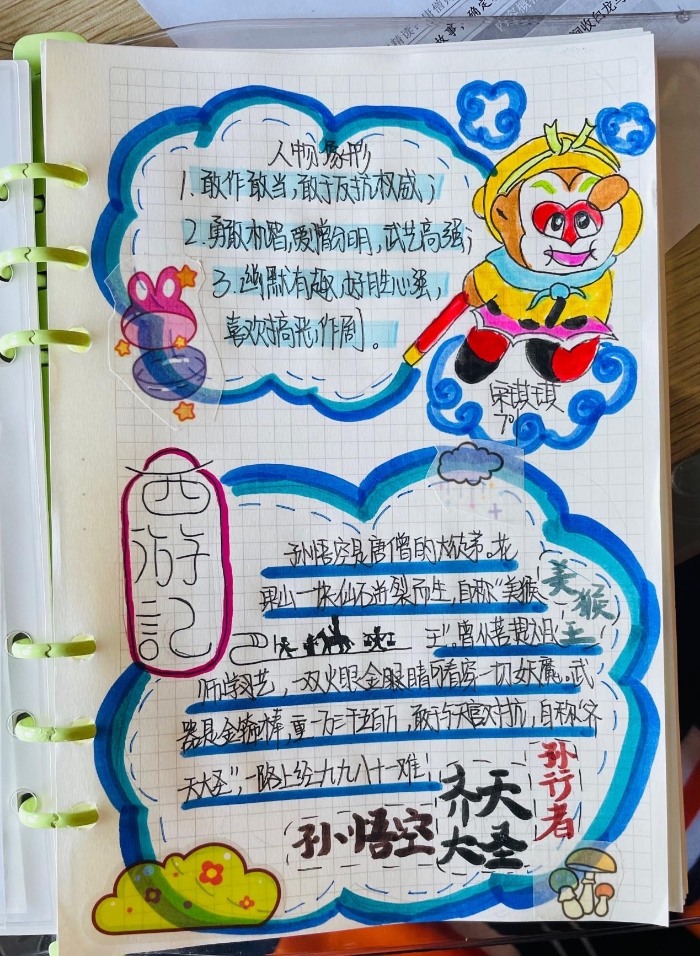 人物形象
1.敢作敢当,敢于反抗权威;
2.勇敢机智,爱憎分明,武艺高强;
3.幽默有趣,好胜心强,
喜欢搞恶作剧。
宋琪琪
7°
西游記
孙悟空是唐僧的大徒弟。花
果山一块仙石迸裂而生,自称“美猴
王”,曾从菩提祖
师学艺,一双火眼金睛可看穿一切妖魔。武
器是金箍棒,重一万三千五百斤,敢于与天宫对抗,自称“齐
天大圣”,一路上经九九八十一难;
美猴王
孙悟空
齐天
大圣
孙行者